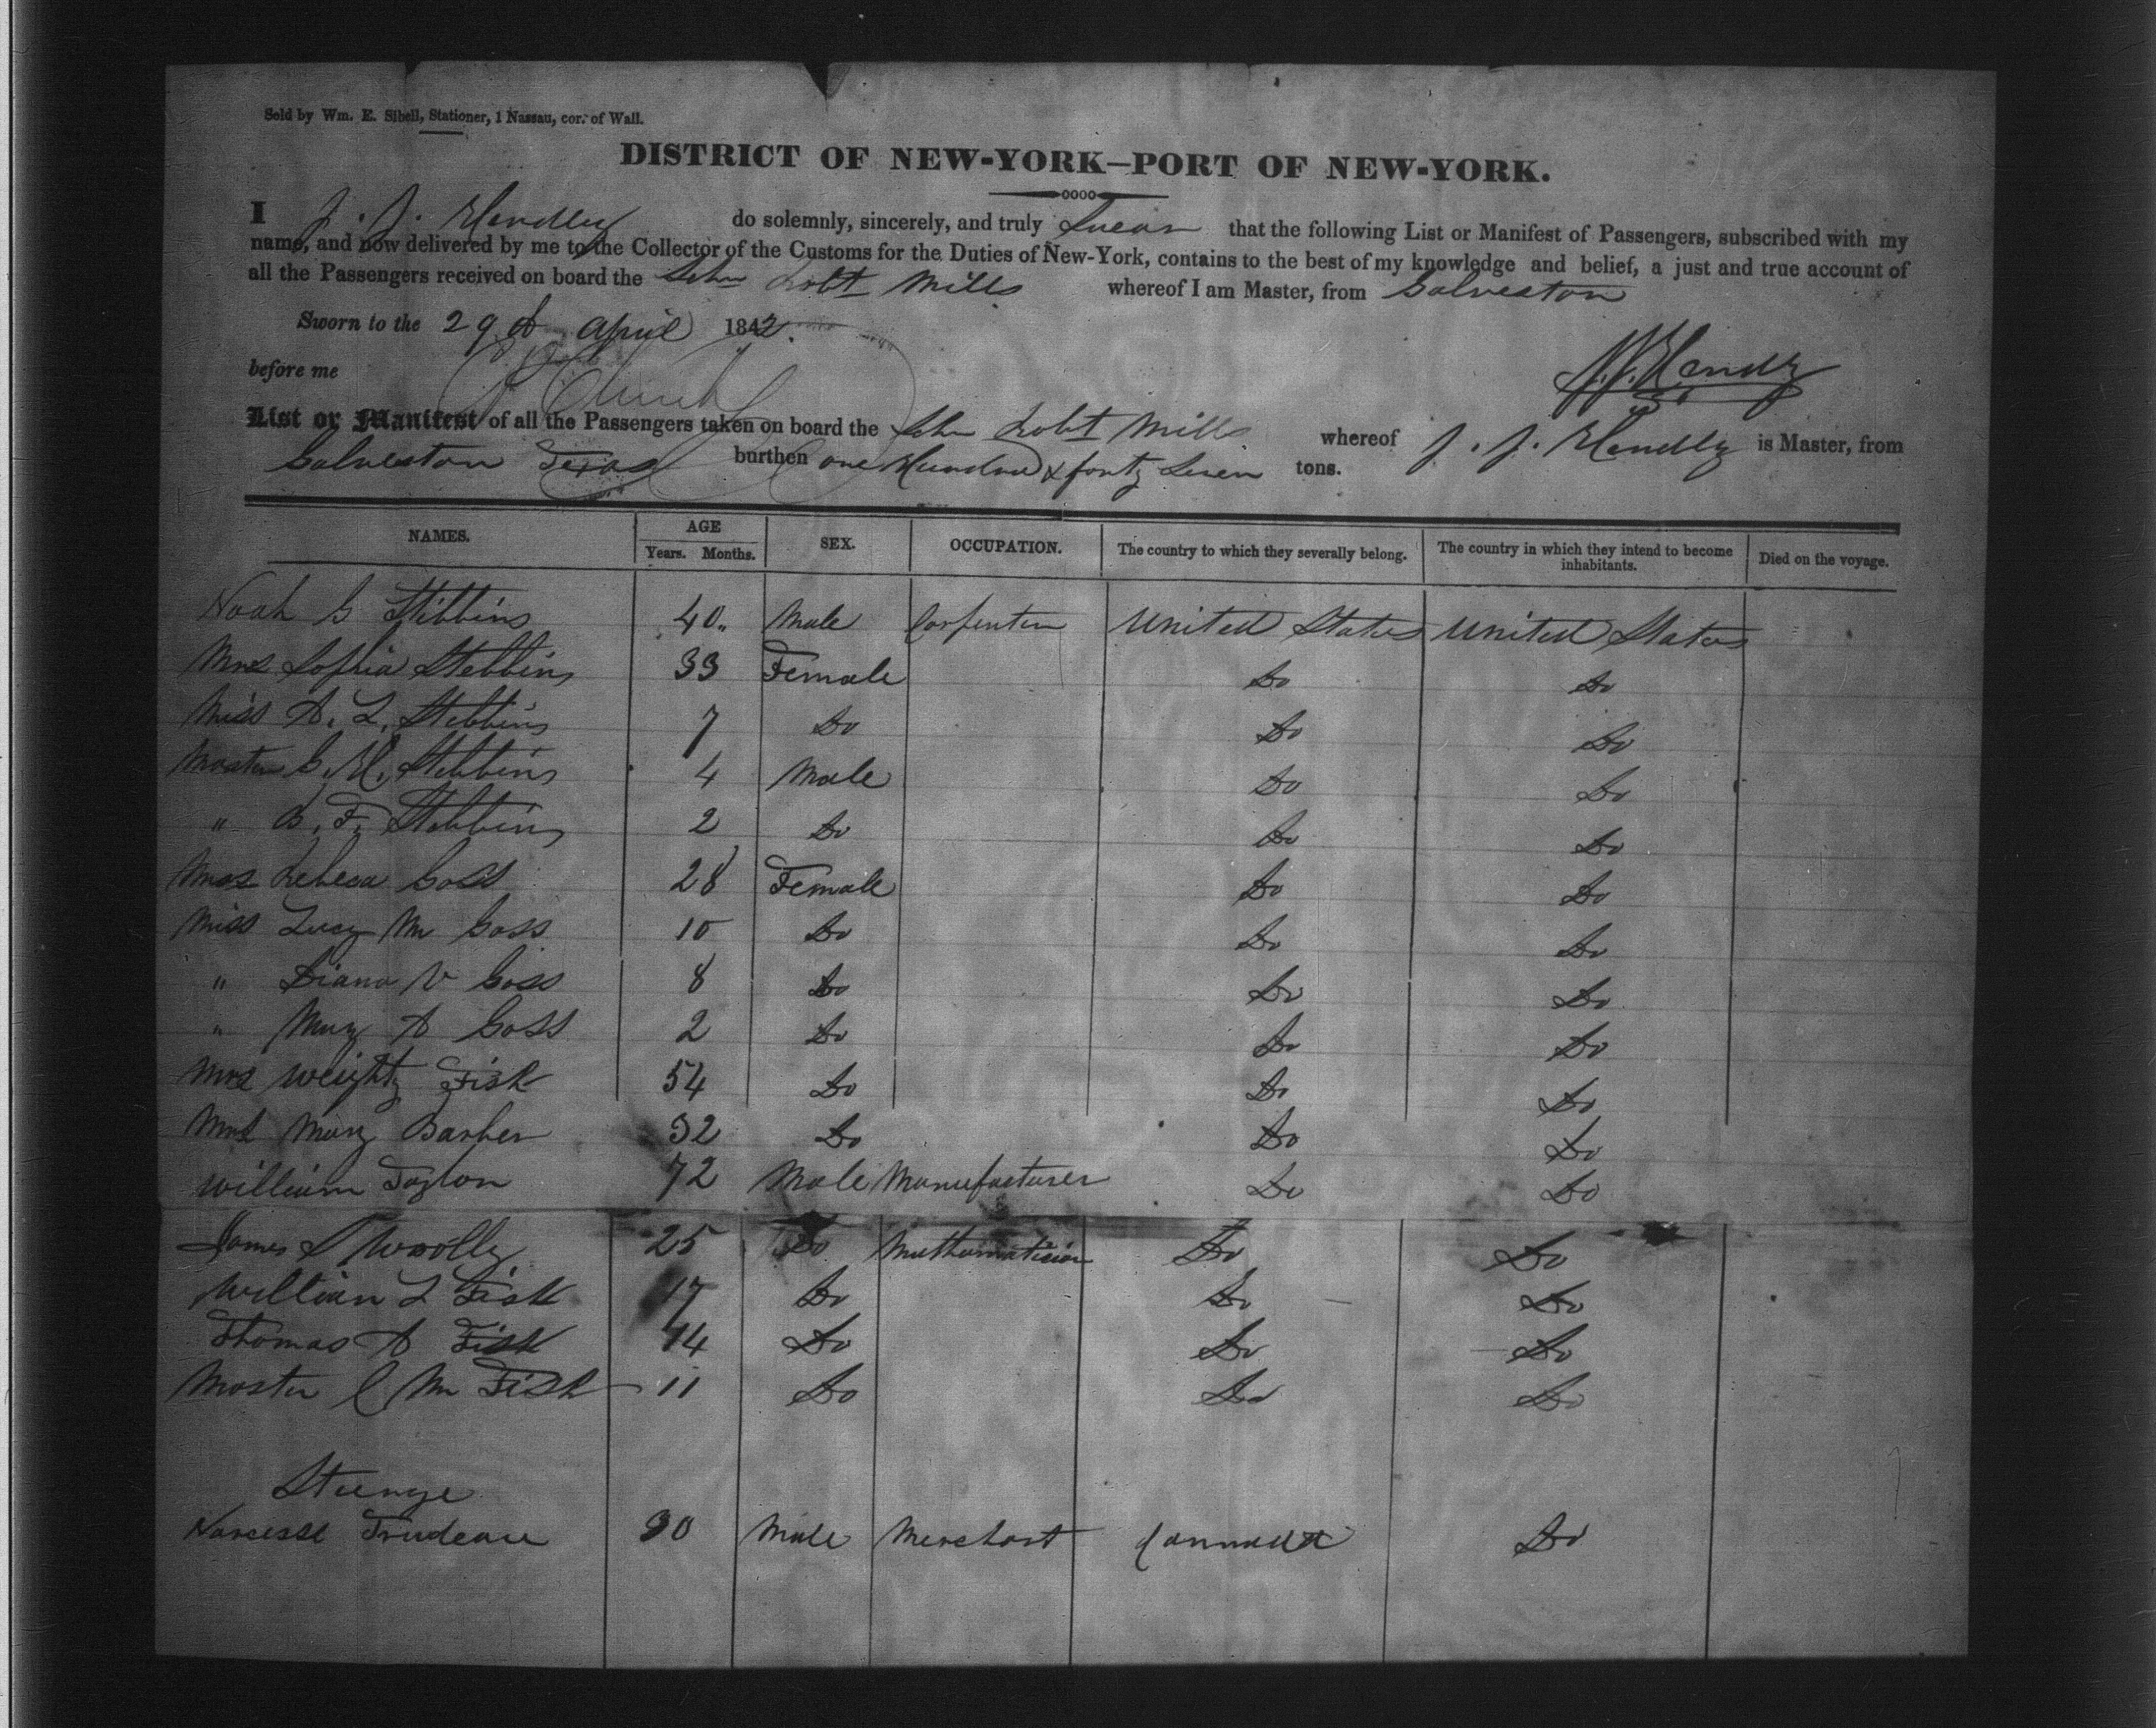 Sold by Wm. E. Sibell, Stationer, 1 Nassau, cor. of Wall.
DISTRICT OF NEW-YORK—PORT OF NEW-YORK.
I J. J. Hendley do solemnly, sincerely, and truly Swear that the following List or Manifest of Passengers, subscribed with my
name, and now delivered by me to the Collector of the Customs for the Duties of New-York, contains to the best of my knowledge and belief, a just and true account of
all the Passengers received on board the Schr Robt Mills whereof I am Master, from Galveston
Sworn to the 29th April 1842.
before me J.J. Hendly
List or Manifest of all the Passengers taken on board the Schr Robt Mills whereof J. J. Hendly is Master, from
Galveston Texas burthen one Hundred & forty Seven tons.
NAMES. AGE Years. Months. SEX. OCCUPATION. The country to which they severally belong. The country in which they intend to become inhabitants. Died on the voyage.
Noah G Stibbins 40 Male Carpenter United States United States
Mrs Sophia Stebbins 33 Female Do Do
Miss A. L. Stebbins 7 Do Do Do
Master G. H. Stebbins 4 Male Do Do
" B. F. Stebbins 2 Do Do Do
Mrs Rebeca Goss 28 Female Do Do
Miss Lucy M Goss 10 Do Do Do
" Diana V Goss 8 Do Do Do
" Mary A Goss 2 Do Do Do
Mrs Weighty Fisk 54 Do Do Do
Mrs Mary Barber 32 Do Do Do
William Taylor 72 Male Manufacturer Do Do
James S Woolly 25 Do Mathematician Do Do
William L Fisk 17 Do Do Do
Thomas A Fisk 14 Do Do Do
Master C M Fisk 11 Do Do Do
Steerage
Narcisse Trudeau 30 Male Merchant Cannada Do